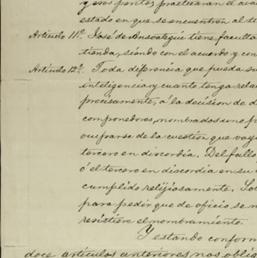 y sus partes practicaran el ava
estado en que se encuentren, al te
Artículo 11º. José de Ansoategui tiene faculta
tienda, siendo con el acuerdo y con
Artículo 12º. Toda diferencia que pueda su
inteligencia y cuanto tenga rela
precisamente, á la decision de d
componedores, nombrados uno p
ocuparse de la cuestion que vaya
tercero en discordia. Del fallo
ó el tercero en discordia en su
cumplido relijiosamente. Lo
para pedir que de oficio se n
resistiere el nombramiento.
Y estando conform
doce artículos anteriores nos oblig